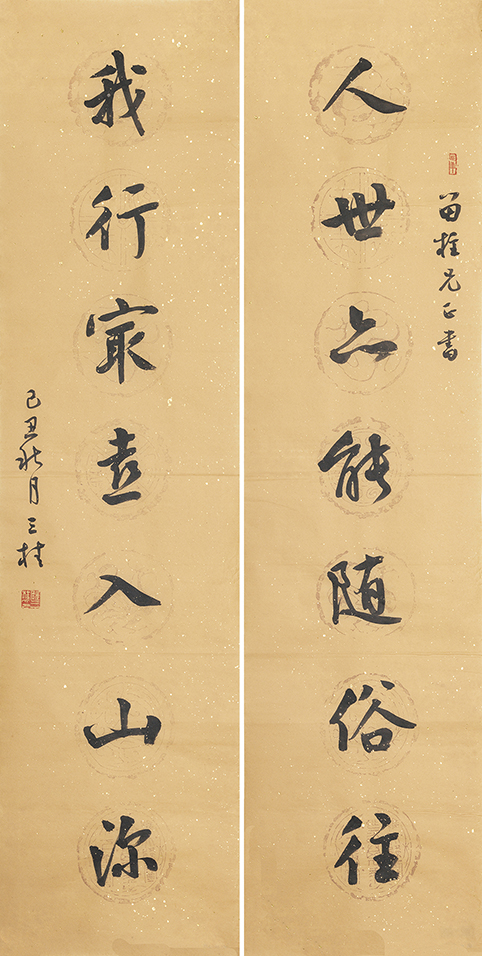 人世亦能随俗往
兄正書
我行最喜入山深
己丑秋月三桂